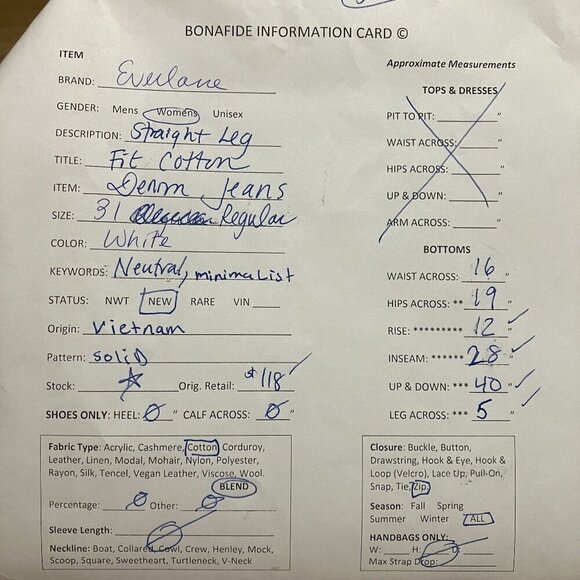 BONAFIDE INFORMATION CARD ©
ITEM
BRAND: Everlane
GENDER: Mens Womens Unisex
DESCRIPTION: Straight Leg
TITLE: Fit Cotton
ITEM: Denim Jeans
SIZE: 31 Regular
COLOR: White
KEYWORDS: Neutral, minimaList
STATUS: NWT NEW RARE VIN
Origin: Vietnam
Pattern: SOLID
Stock: Orig. Retail: $118
SHOES ONLY: HEEL: Ø " CALF ACROSS: Ø "
Fabric Type: Acrylic, Cashmere, Cotton Corduroy,
Leather, Linen, Modal, Mohair, Nylon, Polyester,
Rayon, Silk, Tencel, Vegan Leather, Viscose, Wool.
BLEND
Percentage: Ø Other: Ø
Sleeve Length:
Neckline: Boat, Collared, Cowl, Crew, Henley, Mock,
Scoop, Square, Sweetheart, Turtleneck, V-Neck
Approximate Measurements
TOPS & DRESSES
PIT TO PIT: "
WAIST ACROSS: "
HIPS ACROSS: "
UP & DOWN: "
ARM ACROSS: "
BOTTOMS
WAIST ACROSS: 16 "
HIPS ACROSS: ** 19 "
RISE: ********* 12 "
INSEAM: ****** 28 "
UP & DOWN: *** 40 "
LEG ACROSS: *** 5 "
Closure: Buckle, Button,
Drawstring, Hook & Eye, Hook &
Loop (Velcro), Lace Up, Pull-On,
Snap, Tie, Zip
Season: Fall Spring
Summer Winter ALL
HANDBAGS ONLY:
W: H: D:
Max Strap Drop: